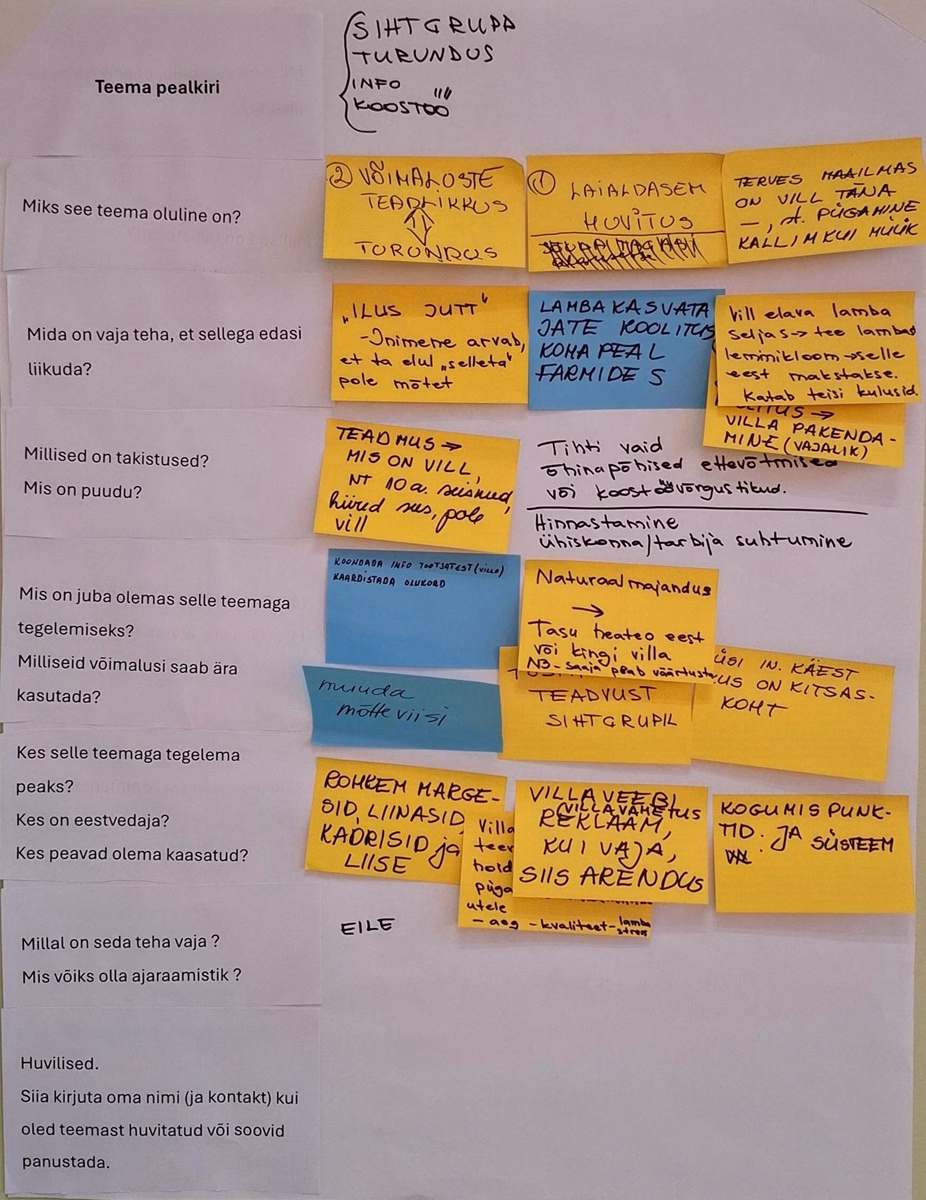 Teema pealkiri
SIHTGRUPP
TURUNDUS
INFO
KOOSTÖÖ
Miks see teema oluline on?
② VÕIMALUSTE
TEADLIKKUS
TURUNDUS
① LAIALDASEM
HUVITUS
TERVES MAAILMAS
ON VILL TÄNA
—, st. PÜGAMINE
KALLIM KUI MÜÜK
Mida on vaja teha, et sellega edasi
liikuda?
"ILUS JUTT"
- Inimene arvab,
et ta elul "selleta"
pole mõtet
LAMBAKASVATA
JATE KOOLITUS
KOHA PEAL
FARMIDES
Vill elava lamba
seljas → tee lambast
lemmikloom → selle
eest makstakse.
Katab teisi kulusid.
VILLA PAKENDA-
MINE (VAJALIK)
Millised on takistused?
Mis on puudu?
TEADMUS →
MIS ON VILL,
NT 10 a. seisnud,
hiired sees, pole
vill
Tihti vaid
õhinapõhised ettevõtmised
või koostöövõrgustikud.
Hinnastamine
Ühiskonna/tarbija suhtumine
Mis on juba olemas selle teemaga
tegelemiseks?
Milliseid võimalusi saab ära
kasutada?
KOONDADA INFO TOOTJATEST (VILLA)
KAARDISTADA OLUKORD
Naturaalmajandus
→
Tasu heateo eest
või kingi villa
NB - saaja peab väärtustama
muuda
mõtteviisi
TEADVUST
SIHTGRUPIL
ÜSI IN. KÄEST
US ON KITSAS-
KOHT
Kes selle teemaga tegelema
peaks?
Kes on eestvedaja?
Kes peavad olema kaasatud?
ROHKEM MARGE-
SID, LIINASID,
KADRISID ja
LIISE
Villa
teer
hoid
püga
utele
- aeg - kvaliteet - lamba
stress
VILLAVEEBI
(VILLAVAHETUS
REKLAAM,
KUI VAJA,
SIIS ARENDUS
KOGUMISPUNK-
TID. JA SÜSTEEM
Millal on seda teha vaja ?
Mis võiks olla ajaraamistik ?
EILE
Huvilised.
Siia kirjuta oma nimi (ja kontakt) kui
oled teemast huvitatud või soovid
panustada.